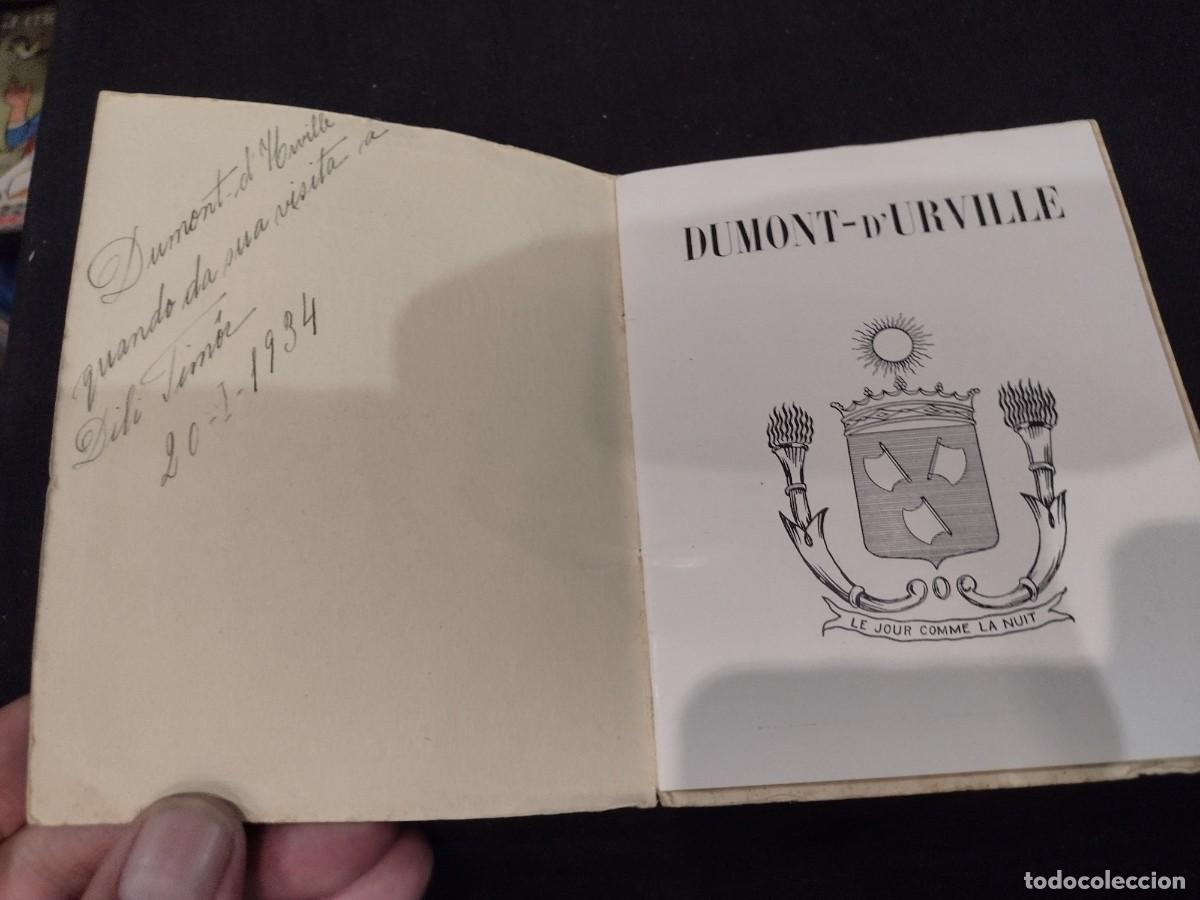 Dumont-d'Urville
quando da sua visita a
Dili Timór
20-I-1934
DUMONT-D'URVILLE
LE JOUR COMME LA NUIT
todocoleccion